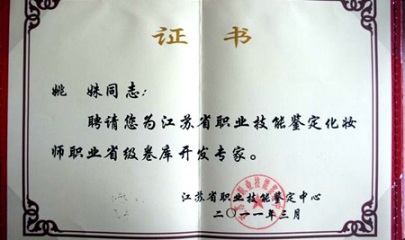 证书
姚 姝同志：
聘请您为江苏省职业技能鉴定化妆
师职业省级卷库开发专家。
江苏省职业技能鉴定中心
二〇一一年三月